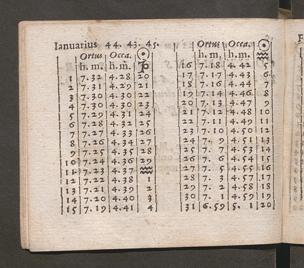 Ianuarius 44. 43. 45.
Ortus Occa. ☉ Ortus Occa. ☉
h. m. h. m. ♑ h. m. h. m. ♒
1 7.32 4.28 20 16 7.18 4.42 5
2 7.31 4.29 21 17 6
3 7.30 4.30 22 18 7.16 4.44 7
4 7.30 4.30 23 19 7.14 8
5 7.29 4.31 24 20 7.13 4.47 9
6 7.28 4.32 25 21 7.12 4.48 10
7 7.27 4.33 26 22 7.11 4.49 11
8 7.26 4.34 27 23 7.10 4.50 12
9 7.25 4.35 28 24 7. 9 4.51 13
10 7.24 4.36 29 25 7. 7 4.53 14
11 7.23 4.37 ♒ 26 7. 6 4.54 15
12 7.22 4.38 1 27 7. 5 4.55 16
13 7.21 4.39 2 28 7. 3 4.57 17
14 7.20 4.40 3 29 7. 2 4.58 18
15 7.19 4.41 4 30 7. 1 4.59 19
31 6.59 5. 1 20